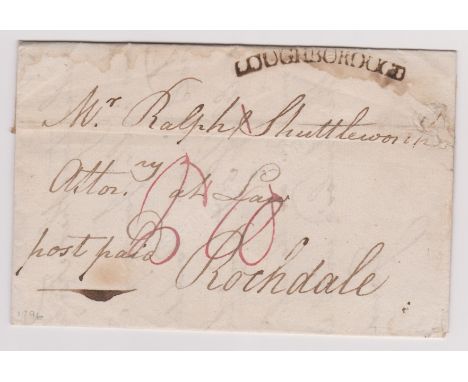 LOUGHBOROUGH
Mr. Ralph Shuttleworth
Attorny. at Law
post paid
Rochdale
1796